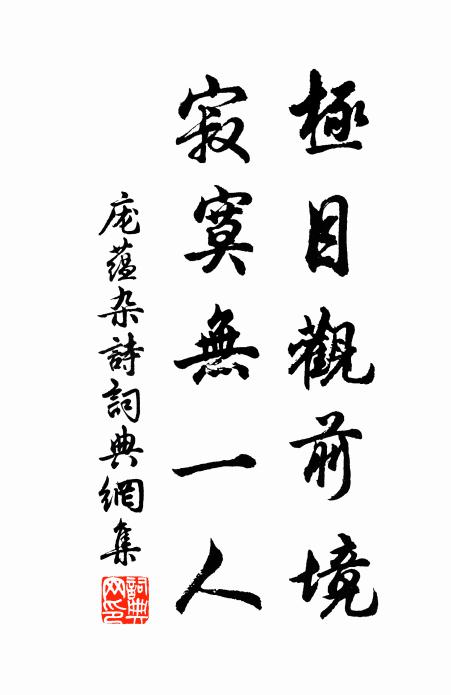 極目觀前境
寂寞無一人
庞蕴杂詩詞典網集
詞典網印